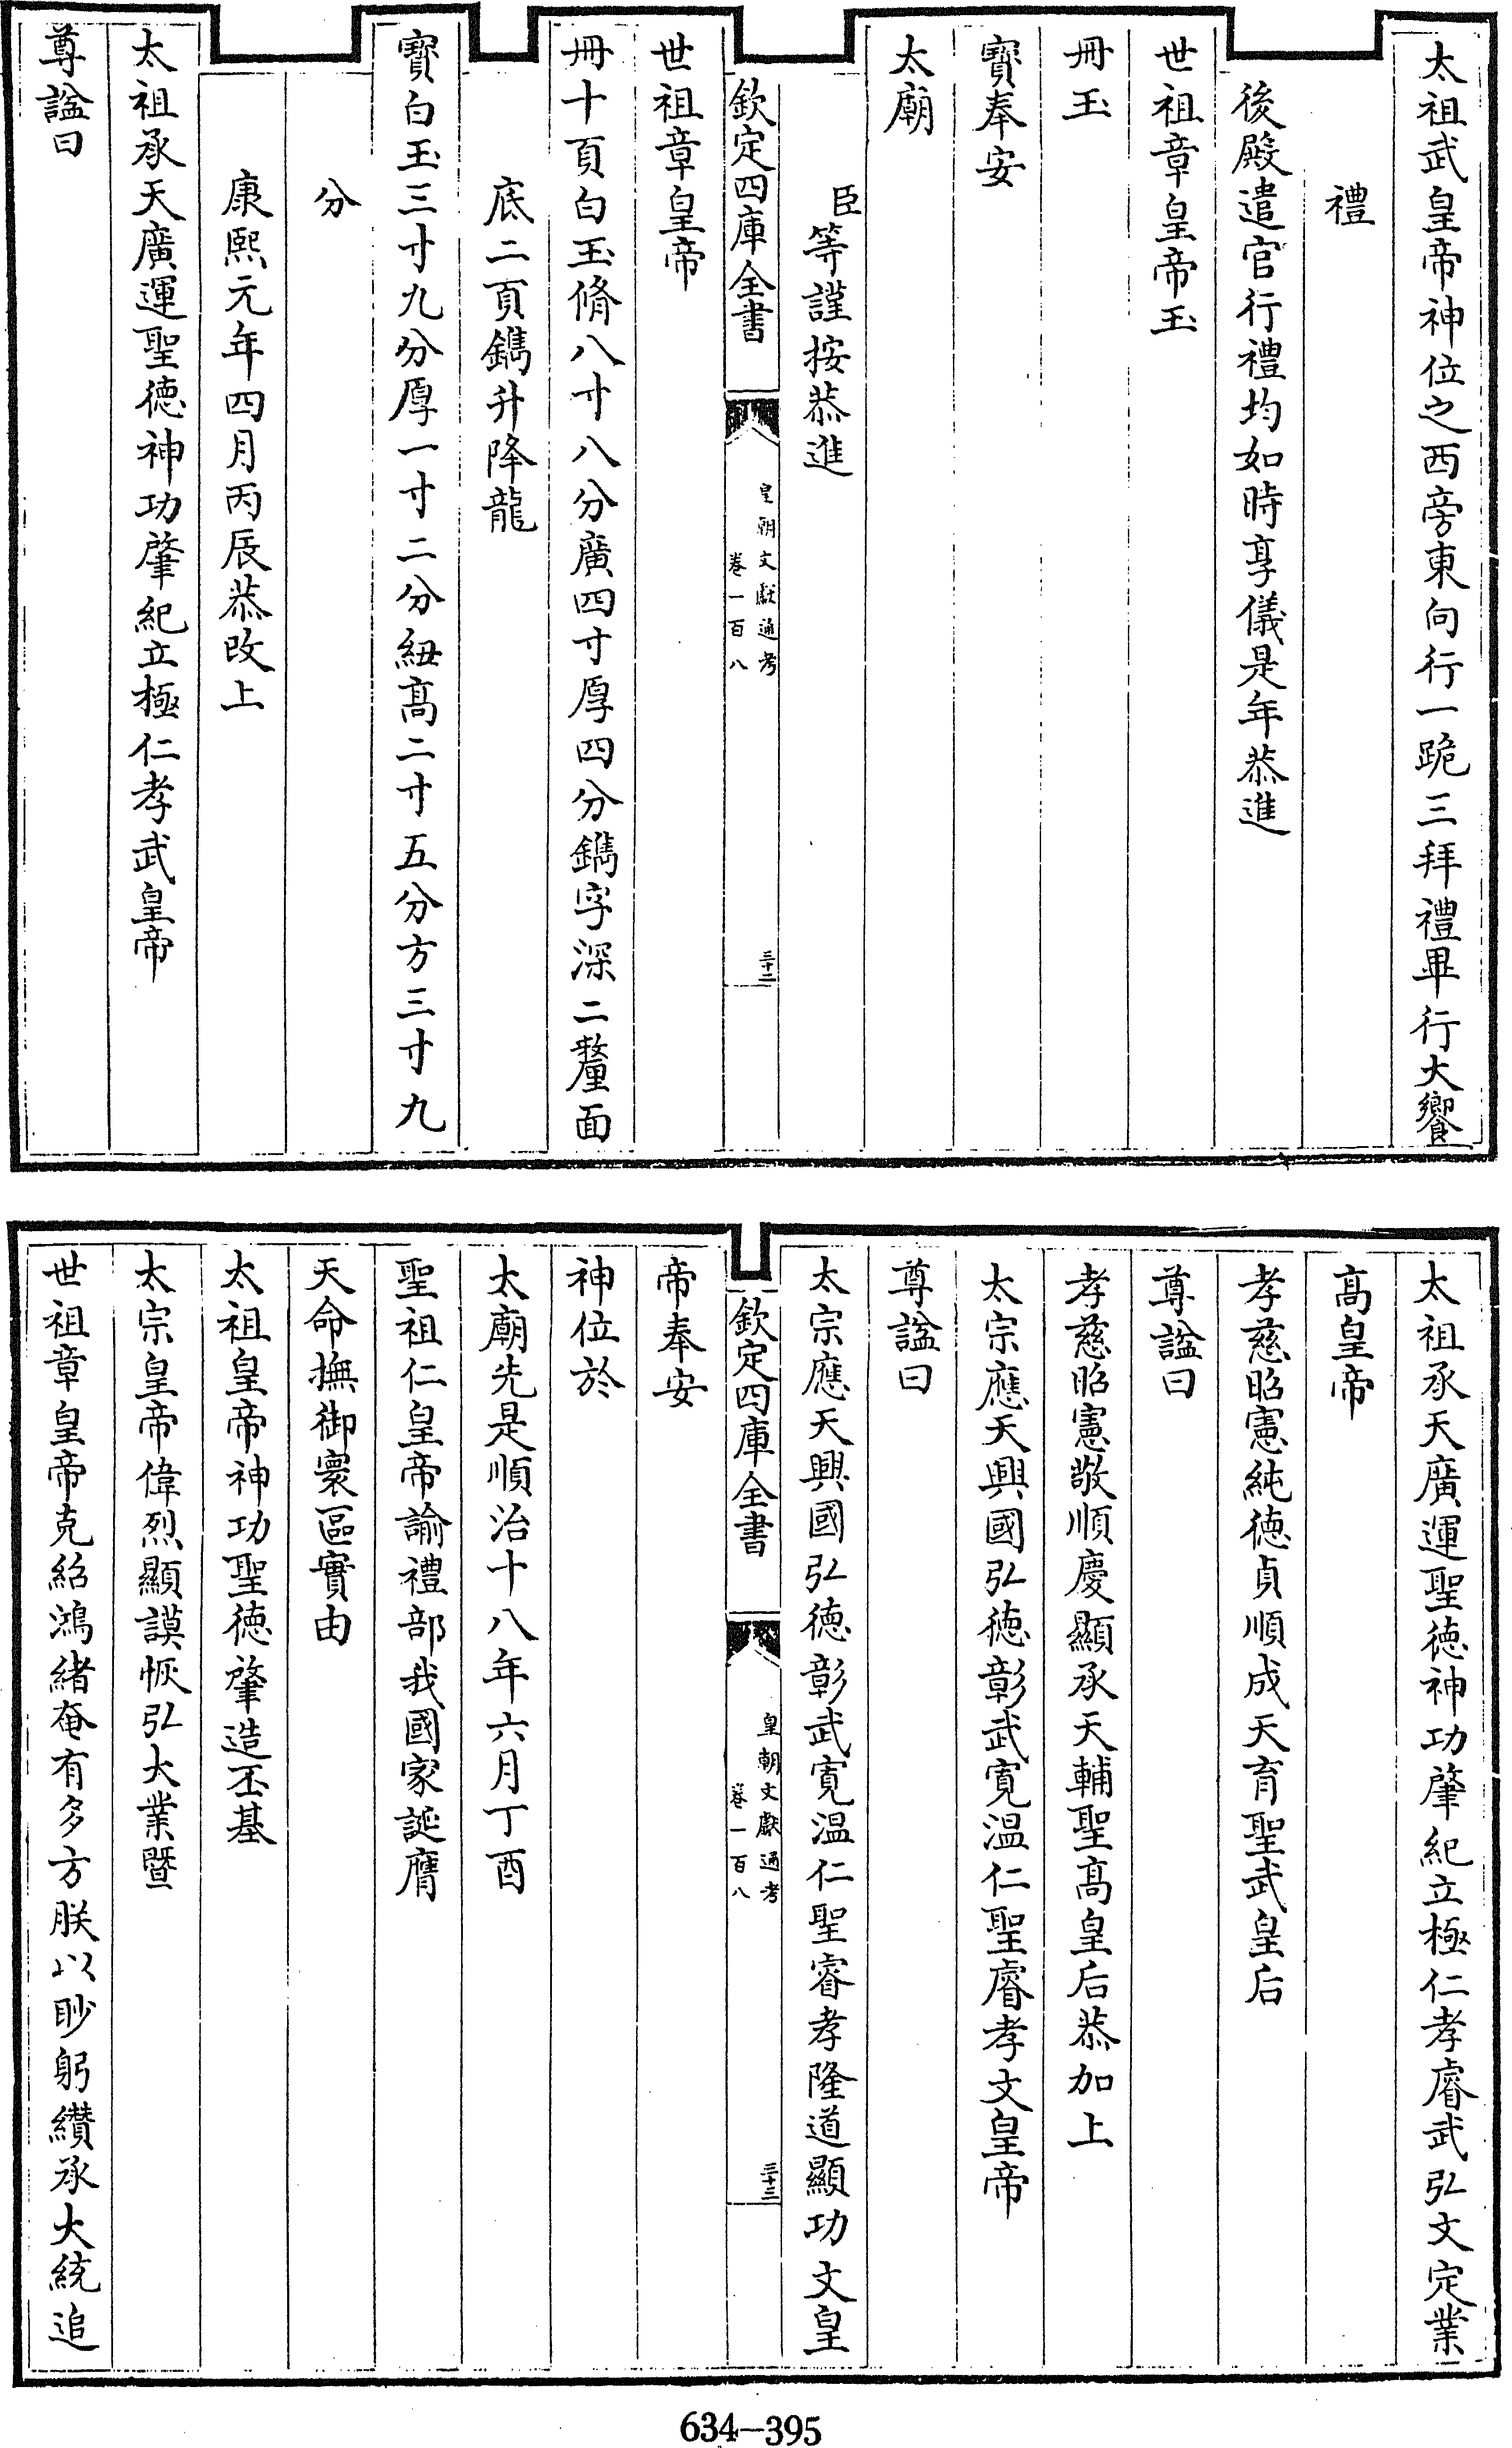 太祖武皇帝神位之西旁東向行一跪三拜禮畢行大饗
禮
後殿遣官行禮均如時享儀是年恭進
世祖章皇帝玉
冊玉
寶奉安
太廟
臣等謹按恭進
欽定四庫全書
皇朝文獻通考
卷一百八
三十二
世祖章皇帝
冊十頁白玉脩八寸八分廣四寸厚四分鐫字深二釐面
底二頁鐫升降龍
寶白玉三寸九分厚一寸二分紐高二寸五分方三寸九
分
康熙元年四月丙辰恭改上
太祖承天廣運聖德神功肇紀立極仁孝武皇帝
尊諡曰
太祖承天廣運聖德神功肇紀立極仁孝睿武弘文定業
高皇帝
孝慈昭憲純德貞順成天育聖武皇后
尊諡曰
孝慈昭憲敬順慶顯承天輔聖高皇后恭加上
太宗應天興國弘德彰武寬温仁聖睿孝文皇帝
尊諡曰
太宗應天興國弘德彰武寬温仁聖睿孝隆道顯功文皇
欽定四庫全書
皇朝文獻通考
卷一百八
三十三
帝奉安
神位於
太廟先是順治十八年六月丁酉
聖祖仁皇帝諭禮部我國家誕膺
天命撫御寰區實由
太祖皇帝神功聖德肇造丕基
太宗皇帝偉烈顯謨恢弘大業暨
世祖章皇帝克紹鴻緒奄有多方朕以眇躬纘承大統追
634—395